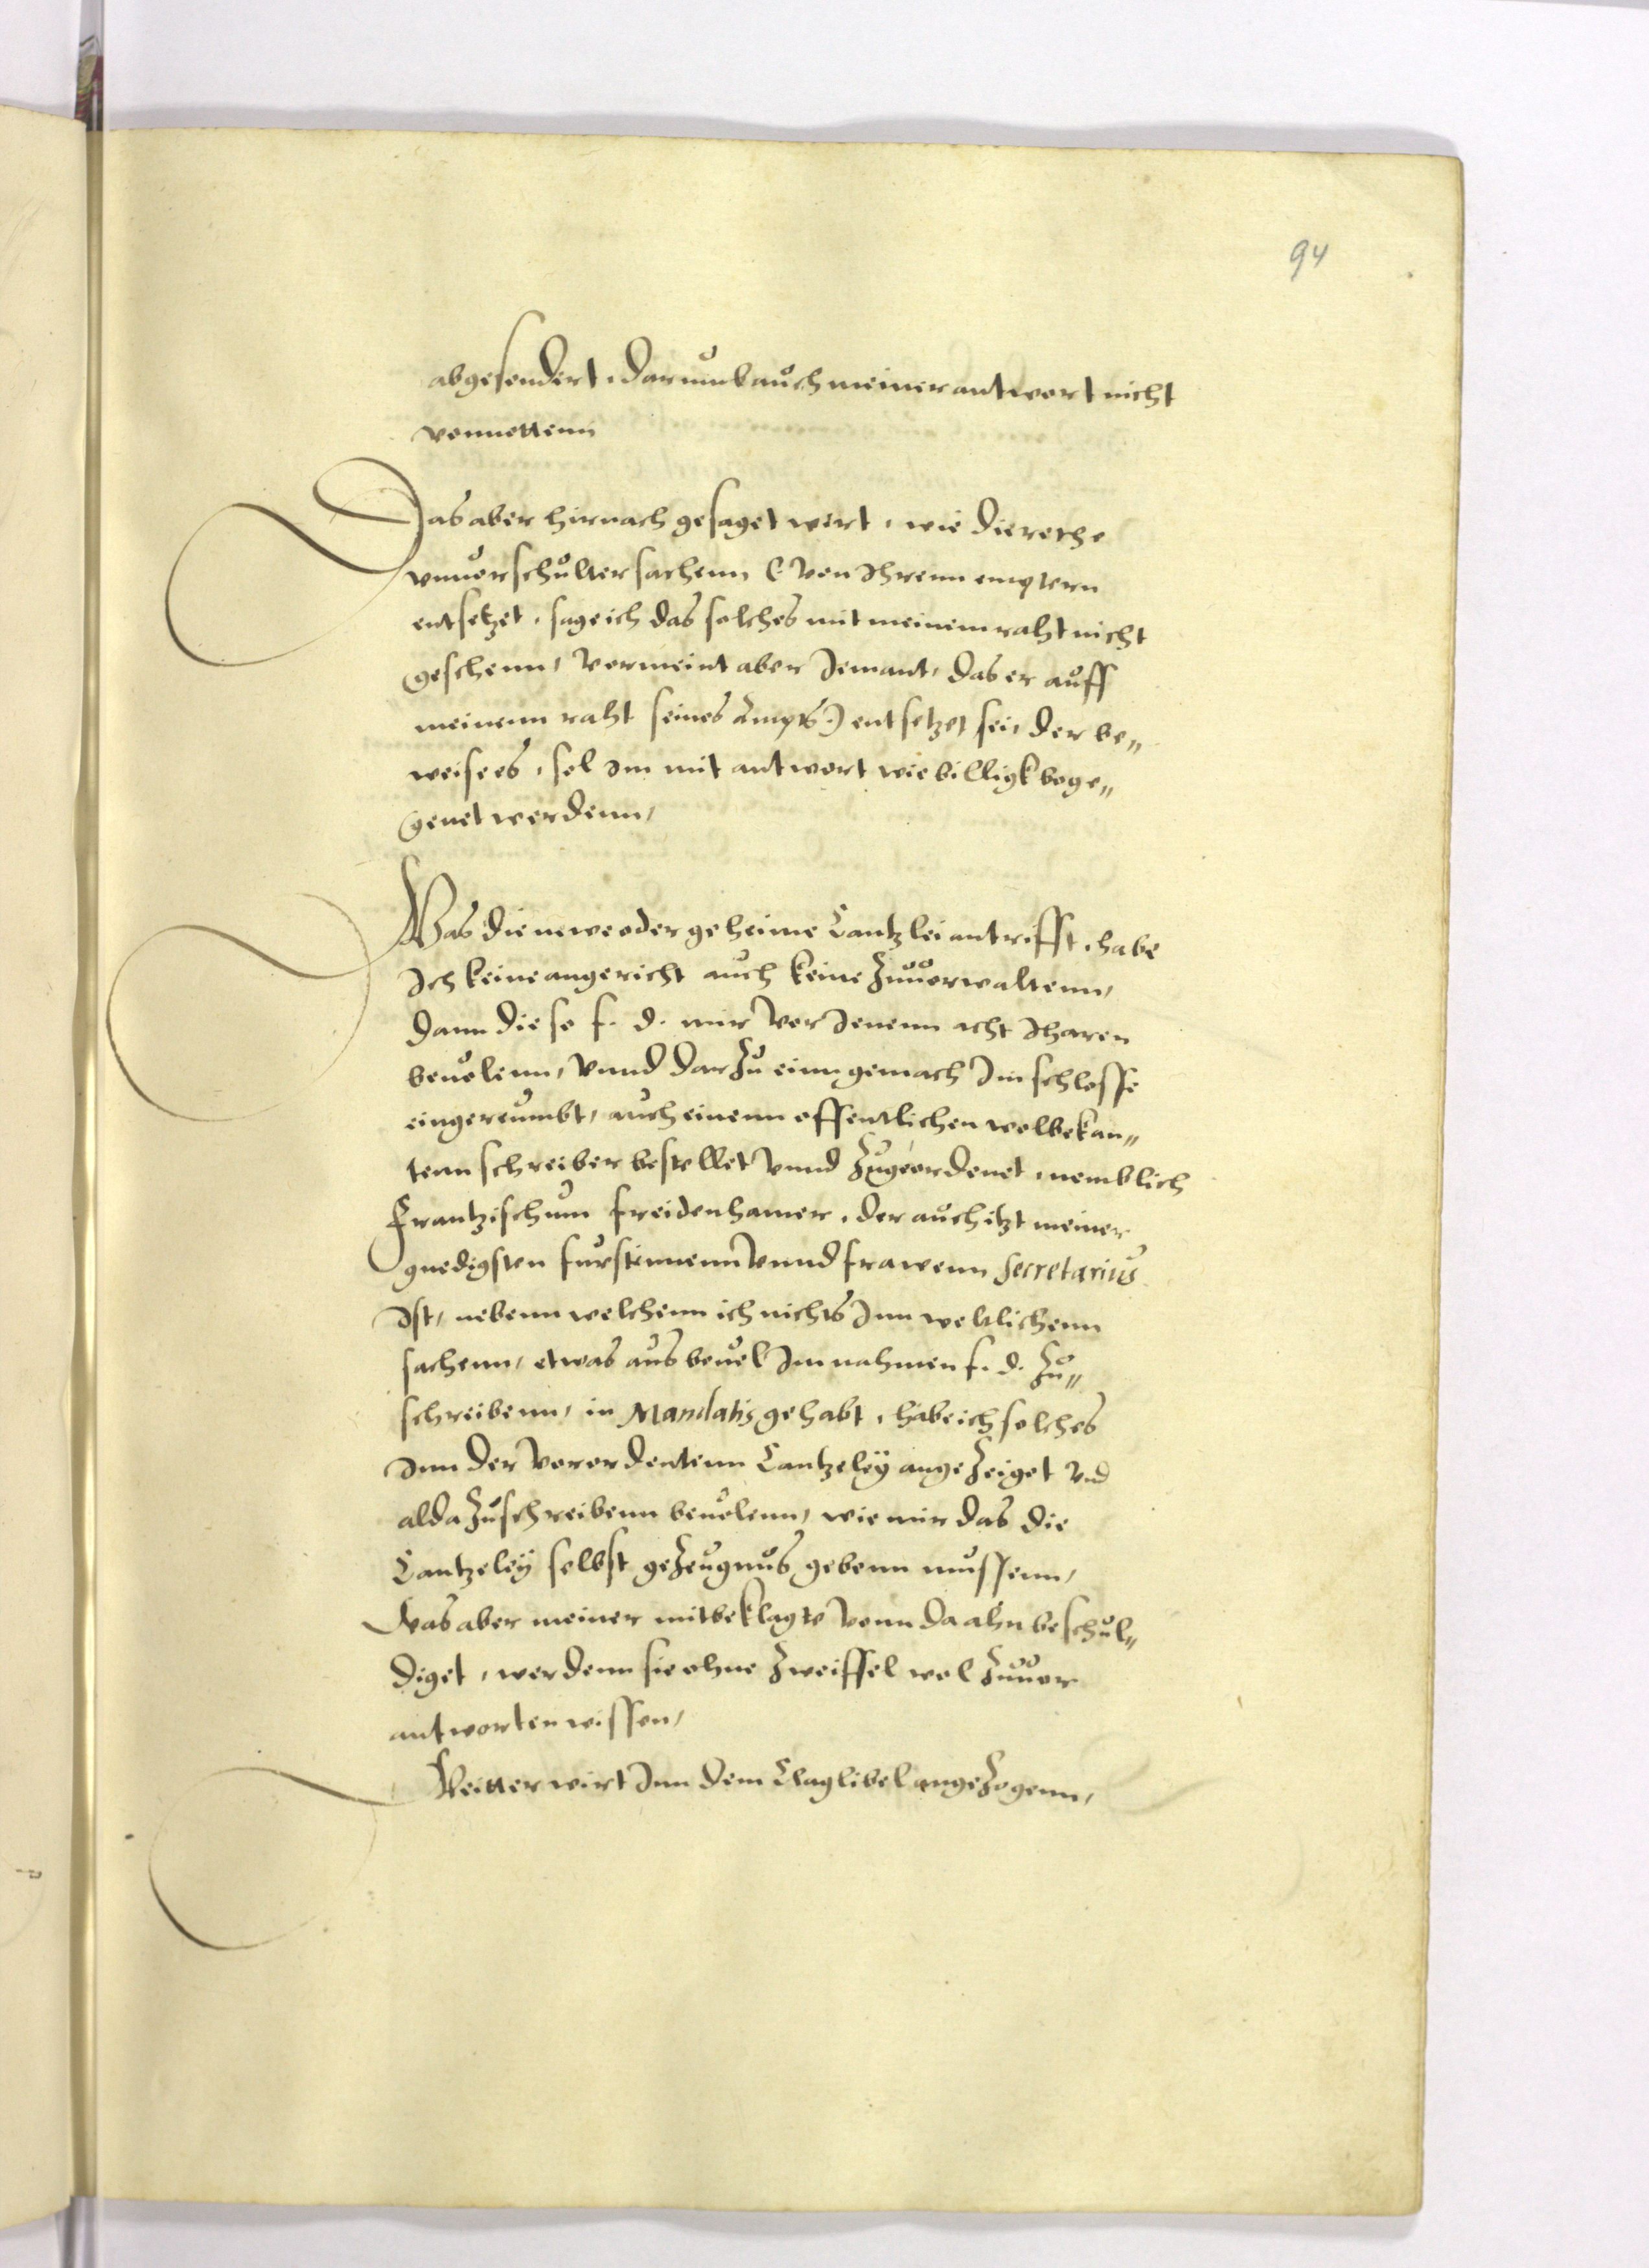 94
abgesendert, darumb auch meiner antwort nicht
vonnottenn
Das aber hirnach gesaget wirt, wie die rethe
vnuorschulter sachenn (: von Ihrenn emptern
entsetzet, sage ich das solches mit meinem raht nicht
geschenn, vormeint aber Iemant, das er auff
meinenn raht seines Ampts :) entsetzet sei, der be„
weise es, sol Im mit antwort wie billigk bege„
genet werdenn,
Was die newe oder geheime Cantzlei antrifft, habe
Ich keine angericht auch keine Zuuorwaltenn,
dann diese f. d. mir vor Ienenn acht Iharen
beuolenn, vnnd darZu einn gemach Im schlosse
eingereumbt, auch einenn offentlichen wolbekan„
tenn schreiber bestellet vnnd Zugeordenet, nemblich
Frantzischum freidenhamer, der auch itzt meiner
gnedigsten furstinnenn vnnd frawenn Secretarius
Ist, nebenn welchenn ich nichts Inn weltlichenn
sachenn, etwas aus beuel Im nahmen f. d. Zu„
schreibenn, in Mandatis gehabt, habe ich solches
Inn der vorordentenn Cantzeleÿ angeZeiget vnd
alda Zuschreibenn beuolenn, wie mir das die
Cantzeleÿ selbst geZeugnus gebenn mussenn,
Was aber meiner mitbeklagte vonn da ahn beschul„
diget, werdenn sie ohne Zweiffel wol Zuuor
antworten wissen,
Weitter wirt Inn dem Claglibel angeZogenn,